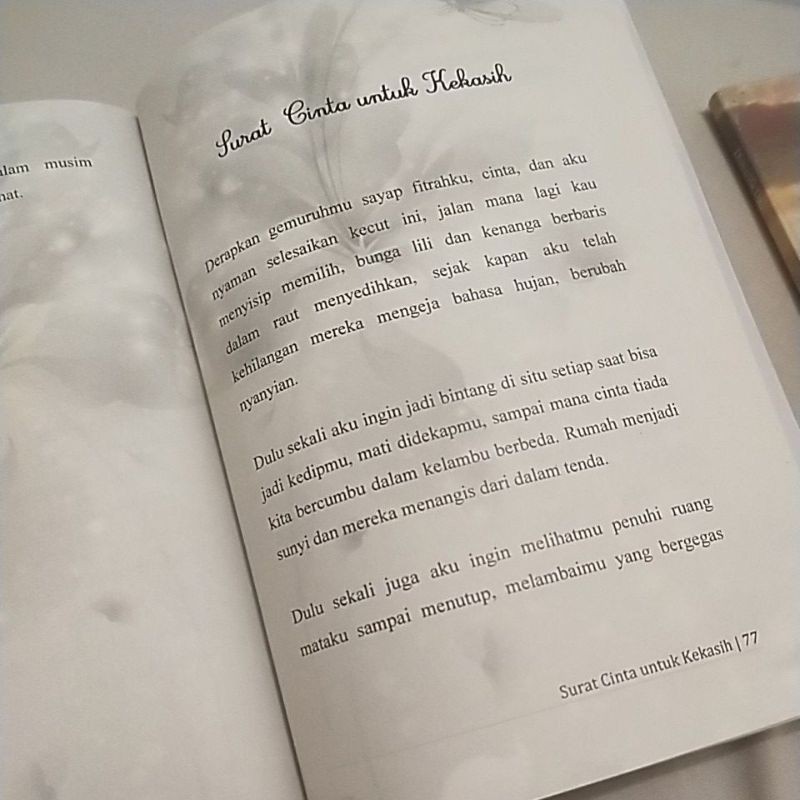 alam musim
Surat Cinta untuk Kekasih
Derapkan gemuruhmu sayap fitrahku, cinta, dan aku
nyaman selesaikan kecut ini, jalan mana lagi kau
menyisip memilih, bunga lili dan kenanga berbaris
dalam raut menyedihkan, sejak kapan aku telah
kehilangan mereka mengeja bahasa hujan, berubah
nyanyian.
Dulu sekali aku ingin jadi bintang di situ setiap saat bisa
jadi kedipmu, mati didekapmu, sampai mana cinta tiada
kita bercumbu dalam kelambu berbeda. Rumah menjadi
sunyi dan mereka menangis dari dalam tenda.
Dulu sekali juga aku ingin melihatmu penuhi ruang
mataku sampai menutup, melambaimu yang bergegas
Surat Cinta untuk Kekasih | 77